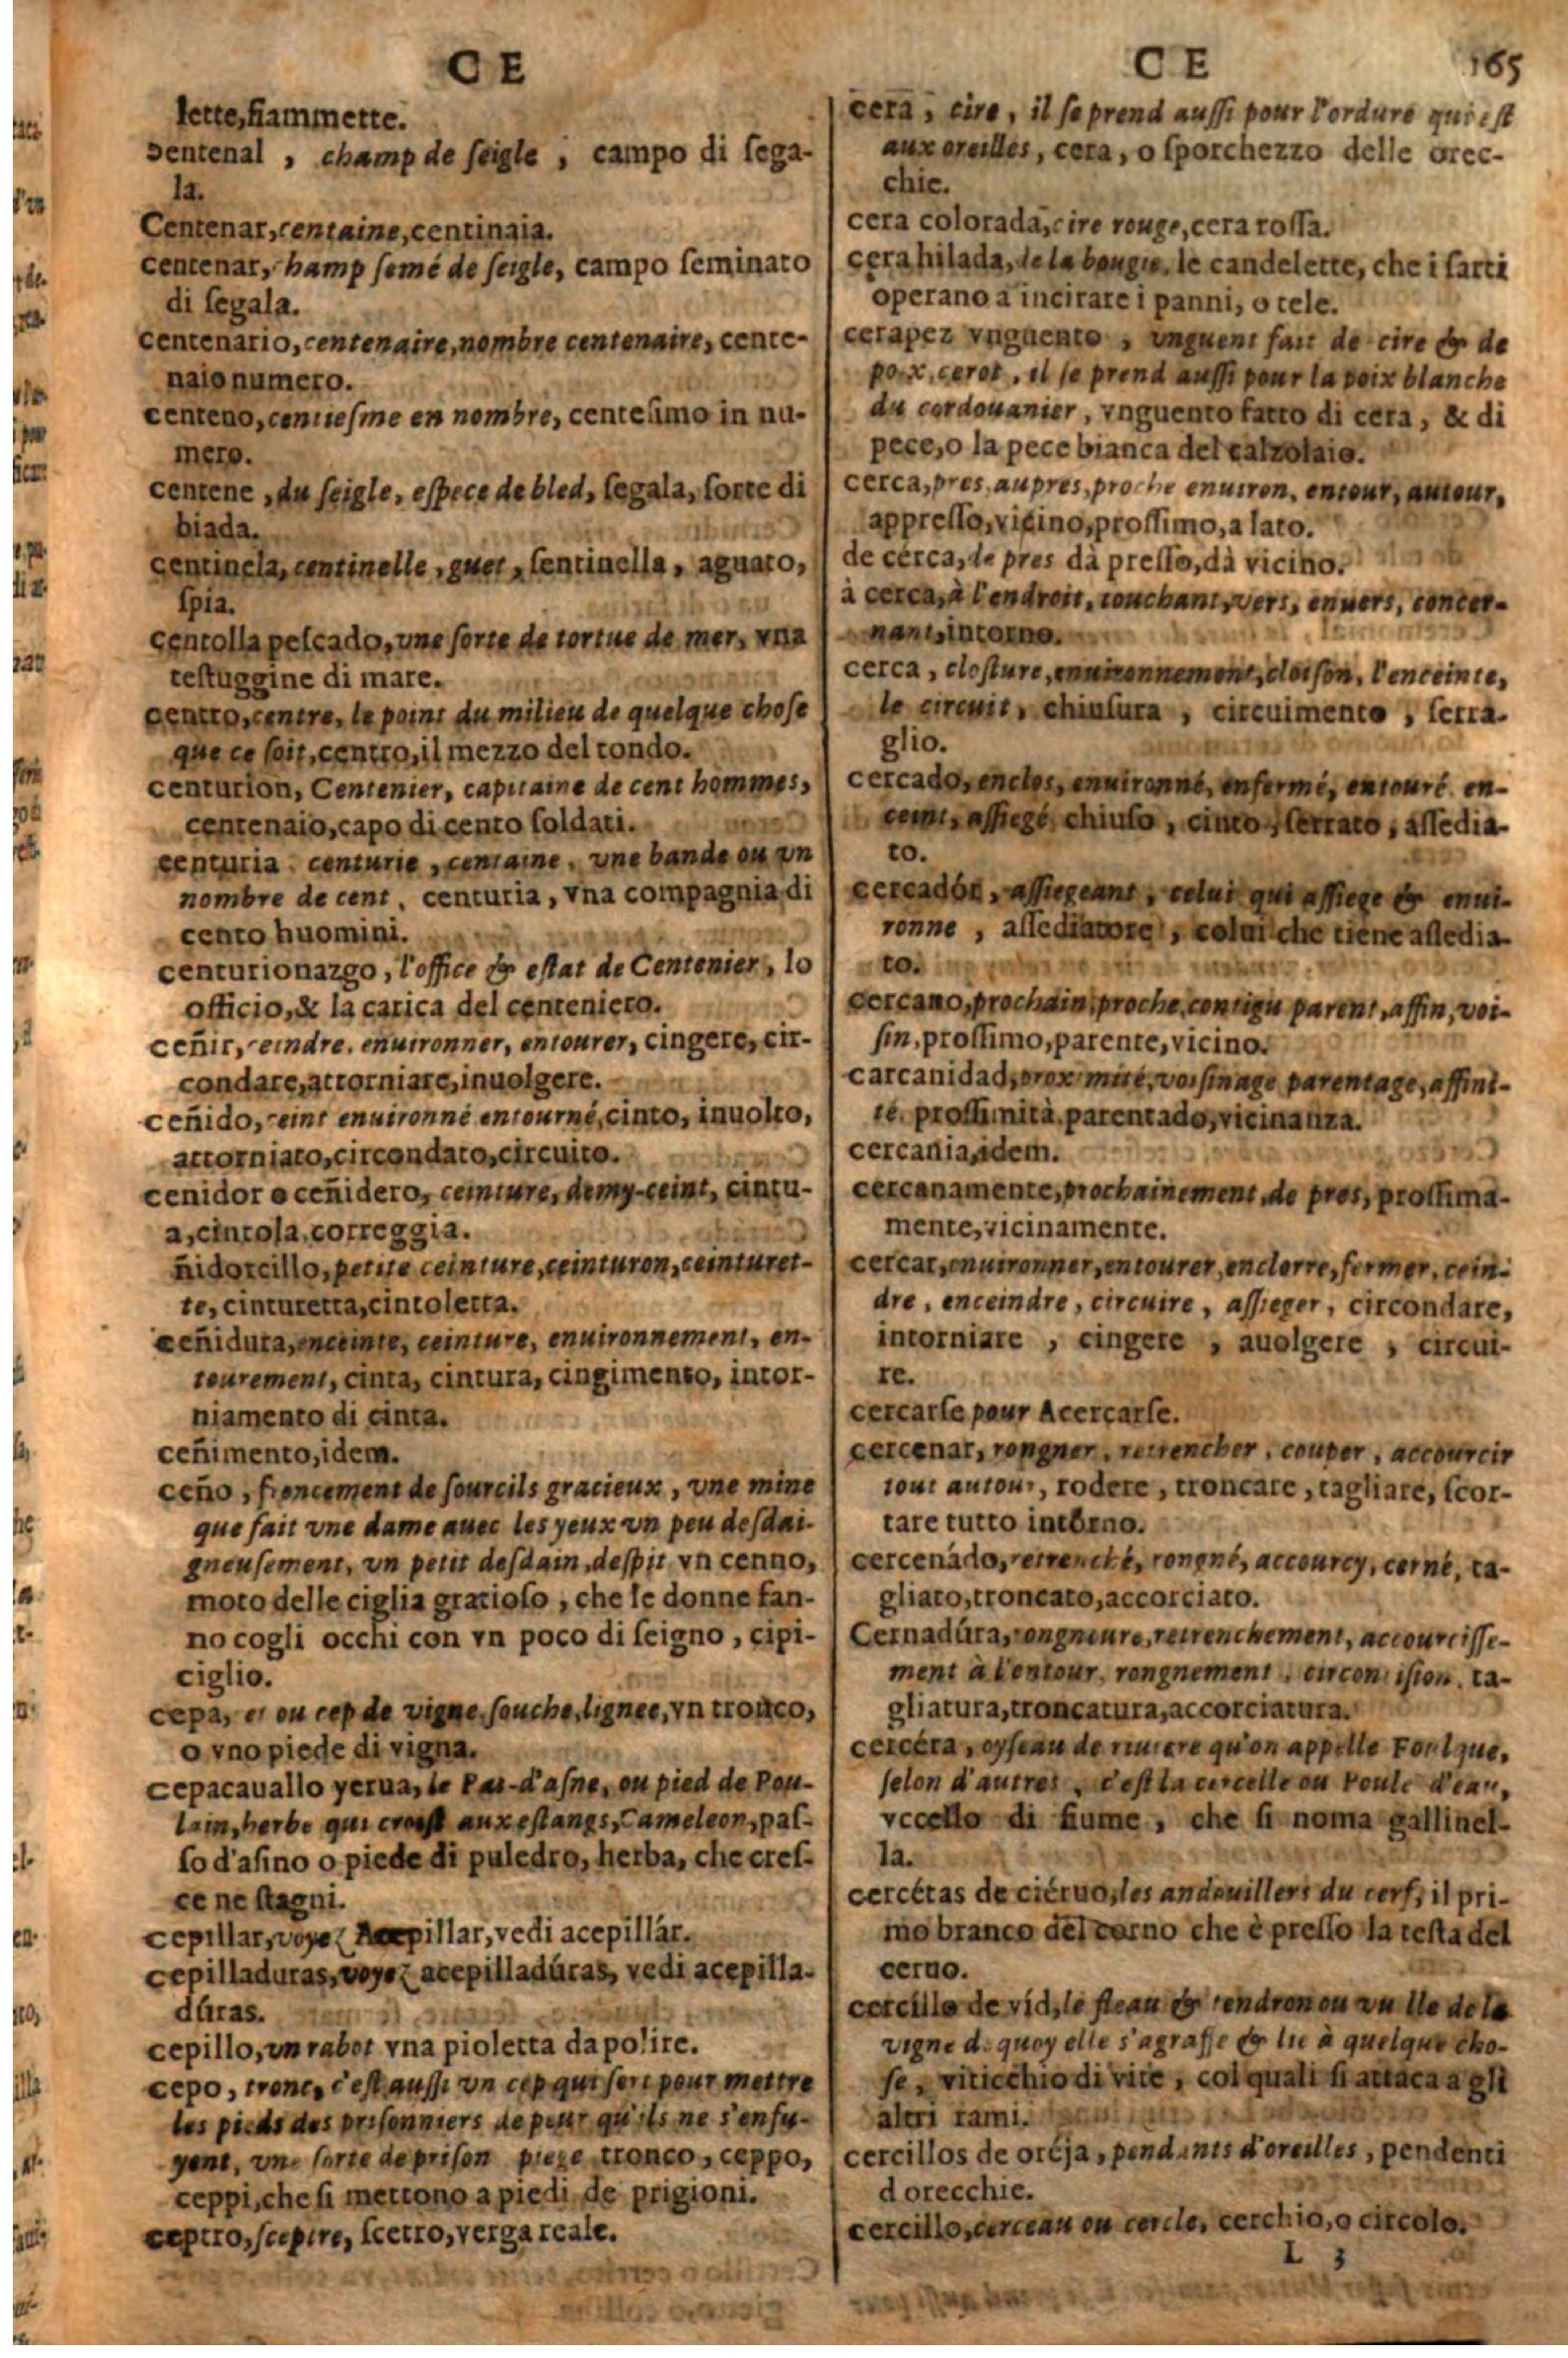 C E
lette,fiammette.
sentenal , champ de ſeigle , campo di ſega-
la.
Centenar,centaine,centinaia.
centenar,champ ſemé de ſeigle, campo ſeminato
di ſegala.
centenario,centenaire,nombre centenaire, cente-
naio numero.
centeno,centieſme en nombre, centeſimo in nu-
mero.
centene ,du ſeigle, eſpece de bled, ſegala, ſorte di
biada.
centinela,centinelle ,guet , ſentinella , aguato,
ſpia.
centolla peſcado,vne ſorte de tortue de mer, vna
teſtuggine di mare.
centro,centre, le point du milieu de quelque choſe
que ce ſoit,centro,il mezzo del tondo.
centurion, Centenier, capitaine de cent hommes,
centenaio,capo di cento ſoldati.
centuria , centurie , centaine , vne bande ou vn
nombre de cent , centuria , vna compagnia di
cento huomini.
centurionazgo , l'office & eſtat de Centenier, lo
officio,& la carica del centeniero.
ceñir,ceindre, enuironner, entourer, cingere, cir-
condare,attorniare,inuolgere.
ceñido,ceint enuironné entourné,cinto, inuolto,
attorniato,circondato,circuito.
cenidor o ceñidero, ceinture, demy-ceint, cintu-
a,cintola,correggia.
ñidorcillo,petite ceinture,ceinturon,ceinturet-
te, cinturetta,cintoletta.
ceñidura,enceinte, ceinture, enuironnement, en-
tourement, cinta, cintura, cingimento, intor-
niamento di cinta.
ceñimento,idem.
ceño , froncement de ſourcils gracieux , vne mine
que fait vne dame auec les yeux vn peu deſdai-
gneuſement, vn petit deſdain,deſpit vn cenno,
moto delle ciglia gratioſo , che le donne fan-
no cogli occhi con vn poco di ſeigno , cipi-
ciglio.
cepa, ou cep de vigne,ſouche,lignee,vn tronco,
o vno piede di vigna.
cepacauallo yerua, le Pas-d'aſne, ou pied de Pou-
lain,herbe qui croiſt aux eſtangs,Cameleon,paſ-
ſo d'aſino o piede di puledro, herba, che creſ-
ce ne ſtagni.
cepillar,voyez Acepillar,vedi acepillár.
cepilladuras,voyez acepilladúras, vedi acepilla-
dúras.
cepillo,vn rabot vna pioletta da polire.
cepo, tronc, c'eſt auſſi vn cep qui ſert pour mettre
les pieds des priſonniers de peur qu'ils ne s'enfu-
yent, vne ſorte de priſon piege tronco, ceppo,
ceppi,che ſi mettono a piedi de prigioni.
ceptro,ſceptre, ſcetro,verga reale.
C E 165
cera , cire , il ſe prend auſſi pour l'ordure qui eſt
aux oreilles, cera, o ſporchezzo delle orec-
chie.
cera colorada,cire rouge,cera roſſa.
cera hilada,de la bougie, le candelette, che i ſarti
operano a incirare i panni, o tele.
cerapez vnguento , vnguent fait de cire & de
poix,cerot , il ſe prend auſſi pour la poix blanche
du cordouanier , vnguento fatto di cera, & di
pece,o la pece bianca del calzolaio.
cerca,pres,aupres,proche enuiron, entour, autour,
appreſſo,vicino,proſſimo,a lato.
de cerca,de pres dà preſſo,dà vicino.
à cerca,à l'endroit, touchant,vers, enuers, concer-
nant,intorno.
cerca , cloſture,enuironnement,cloiſon, l'enceinte,
le circuit, chiuſura , circuimento , ſerra-
glio.
cercado,enclos, enuironné, enfermé, entouré, en-
ceint, aſſiegé chiuſo , cinto , ſerrato , aſſedia-
to.
cercadór , aſſiegeant , celui qui aſſiege & enui-
ronne , aſſediatore , colui che tiene aſſedia-
to.
cercano,prochain,proche,contigu parent,affin,voi-
ſin,proſſimo,parente,vicino.
carcanidad,proximité,voiſinage parentage,affini-
té, proſſimità,parentado,vicinanza.
cercania,idem.
cercanamente,prochainement,de pres, proſſima-
mente,vicinamente.
cercar,enuironner,entourer,enclorre,fermer, cein-
dre , enceindre , circuire , aſſieger, circondare,
intorniare , cingere , auolgere , circui-
re.
cercarſe pour Acercarſe.
cercenar, rongner , retrencher , couper , accourcir
tout autour, rodere , troncare , tagliare, ſcor-
tare tutto intorno.
cercenádo,retrenché, rongné, accourcy, cerné, ta-
gliato,troncato,accorciato.
Cernadúra,rongneure,retrenchement, accourciſſe-
ment à l'entour, rongnement , circonciſion, ta-
gliatura,troncatura,accorciatura.
cercéra , oyſeau de riuiere qu'on appelle Foulque,
ſelon d'autres , c'eſt la cercelle ou Poule d'eau,
vccello di fiume , che ſi noma gallinel-
la.
cercétas de ciéruo,les andouillers du cerf, il pri-
mo branco del corno che è preſſo la teſta del
ceruo.
cercillo de víd,le fleau & tendron ou vrille de la
vigne de quoy elle s'agraffe & lie à quelque cho-
ſe , viticchio di vite , col quali ſi attaca a gli
altri rami.
cercillos de oréja , pendants d'oreilles , pendenti
d orecchie.
cercillo,cerceau ou cercle, cerchio,o circolo.
L 3